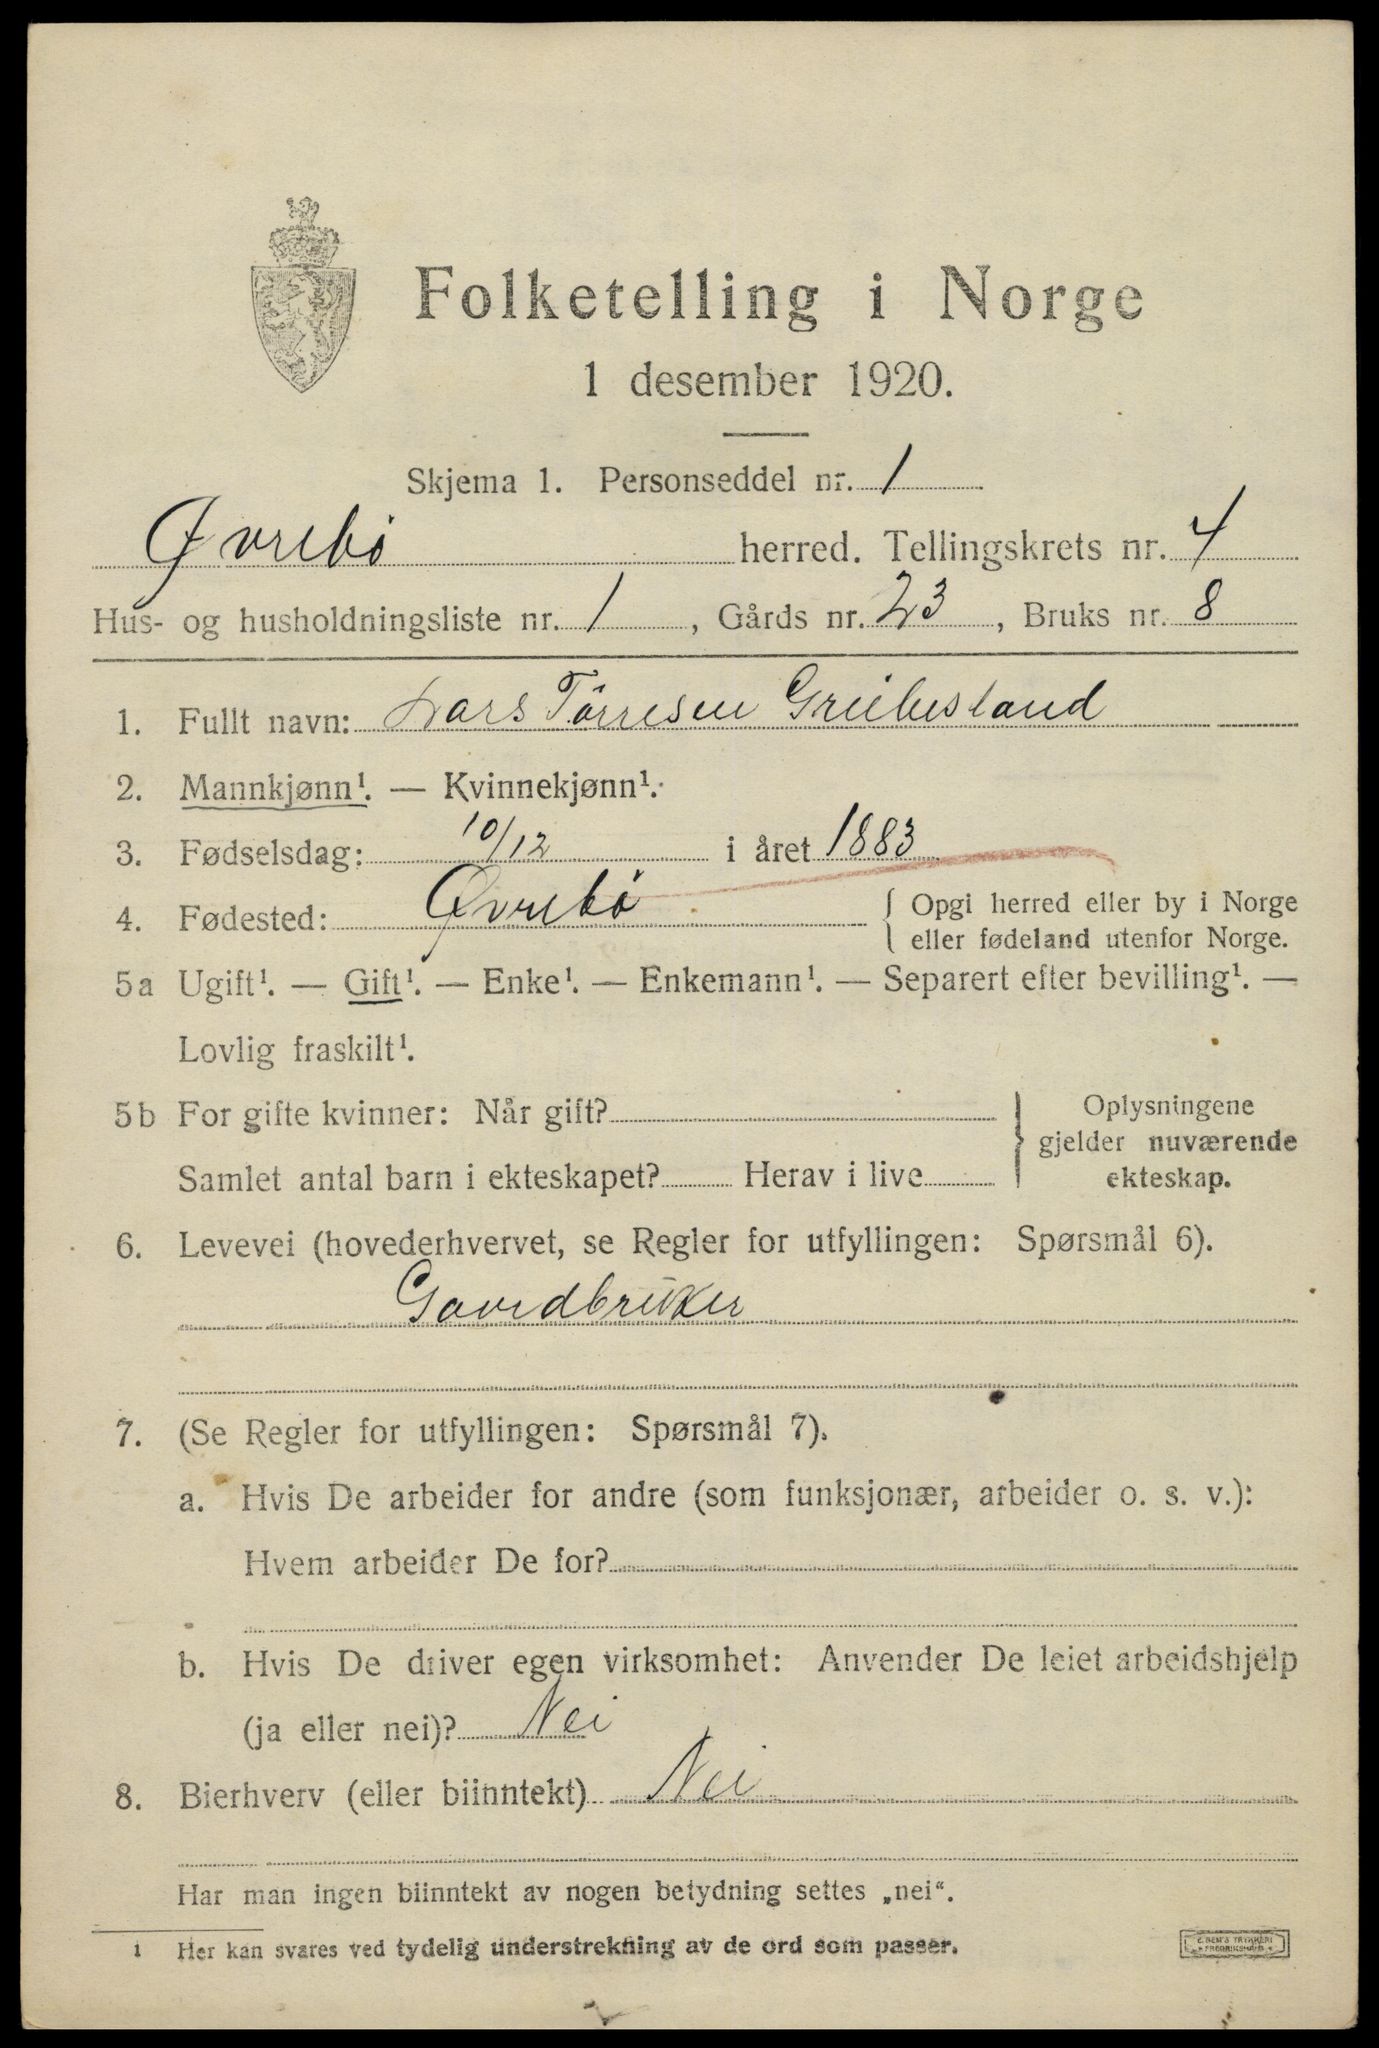 Folketelling i Norge
1 desember 1920.
Skjema 1. Personseddel nr. 1
Øvrebö herred. Tellingskrets nr. 4
Hus- og husholdningsliste nr. 1, Gårds nr. 23, Bruks nr. 8
1. Fullt navn: Lars Törresen Greibesland
2. Mannkjønn¹. — Kvinnekjønn¹.
3. Fødselsdag: 10/12 i året 1883
4. Fødested: Øvrebö { Opgi herred eller by i Norge
eller fødeland utenfor Norge.
5a Ugift¹. — Gift¹. — Enke¹. — Enkemann¹. — Separert efter bevilling¹. —
Lovlig fraskilt¹.
5b For gifte kvinner: Når gift? } Oplysningene
gjelder nuværende
Samlet antal barn i ekteskapet? Herav i live ekteskap.
6. Levevei (hovederhvervet, se Regler for utfyllingen: Spørsmål 6).
Gaardbruker
7. (Se Regler for utfyllingen: Spørsmål 7).
a. Hvis De arbeider for andre (som funksjonær, arbeider o. s. v.):
Hvem arbeider De for?
b. Hvis De driver egen virksomhet: Anvender De leiet arbeidshjelp
(ja eller nei)? Nei
8. Bierhverv (eller biinntekt) Nei
Har man ingen biinntekt av nogen betydning settes „nei“.
1 Her kan svares ved tydelig understrekning av de ord som passer.